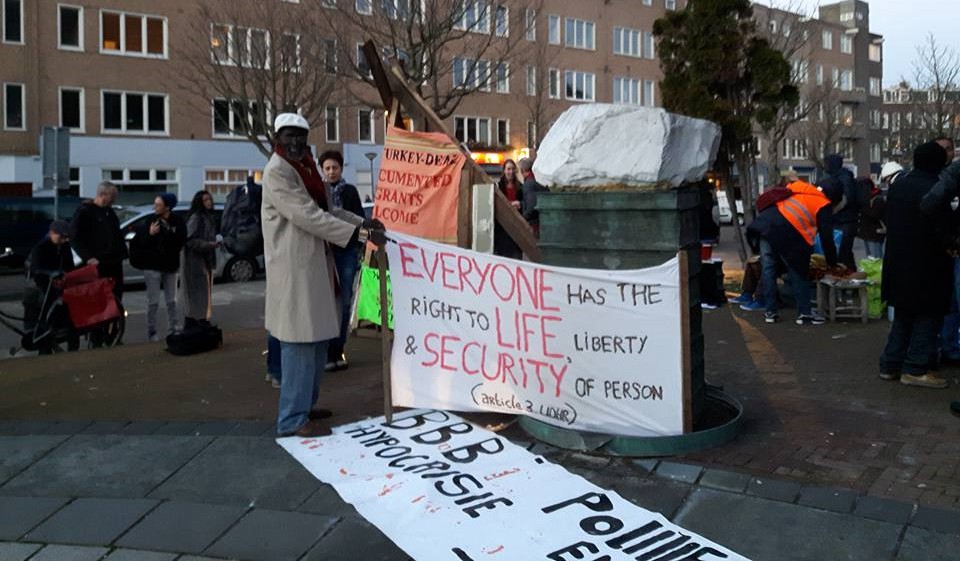 TURKEY-DEAL
CUMENTED
GRANTS
LCOME
EVERYONE HAS THE
RIGHT TO LIFE, LIBERTY
& SECURITY OF PERSON
(article 3 UDHR)
BBB
HYPOCRISIE
POLITIE